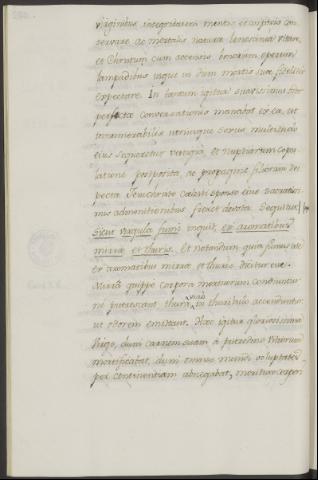 virginibus integritatem mentis et corporis con
servare ac mortalis naturae
et Christum cum accensis bonorum operum
lampadibus usque in finem mortis suae fideliter
expectare. In tantum igitur suavissimus odor
perfectae conversationis manabat ex ea, ut
innumerabilis utriusque sexus multitudo
eius sequeretur vestigia, et nuptiarum copu
latione postposita, ac propagine filiorum des
pecta Jesu christo caelesti sponso eius sacratissi
mis admonitionibus fieret devota. Sequitur
Sicut virgula fumi inquit, ex aromatibus
mirrae et thuris. Et notandum quia fumus iste
ex aromatibus mirrae et thuris dicitur esse.
Mirra quippe corpora mortuorum condiuntur
ne putrescant, thura in thuribulis accenduntur
ut odorem emittant. Haec igitur gloriosissima
Virgo, dum carnem suam a putredine vitiorum
mortificabat, dum omnes mundi voluptates
per continentiam abnegabat,